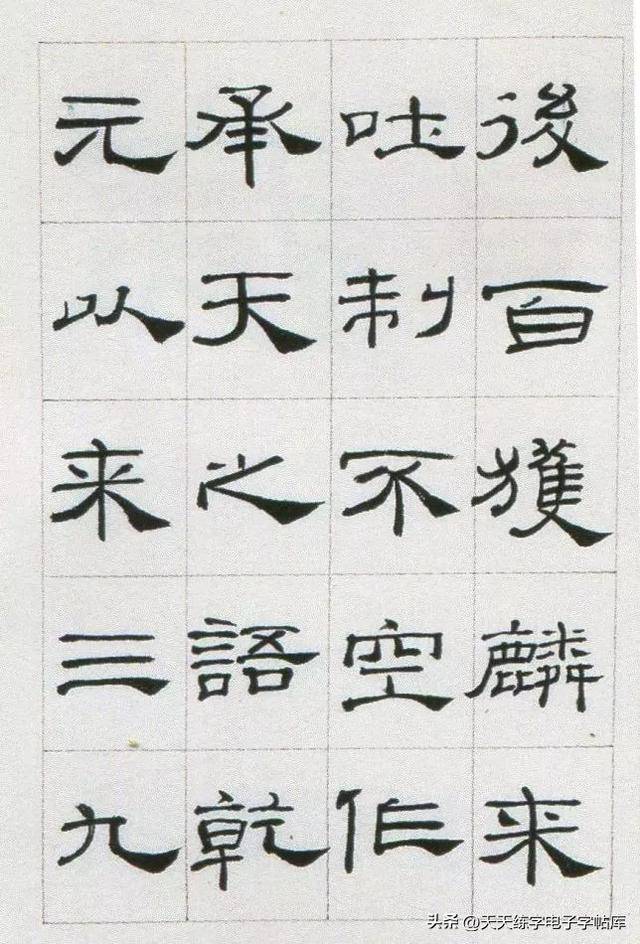 後百獲麟来
吐制不空作
承天之語乾
元以来三九
头条 @天天练字电子字帖库